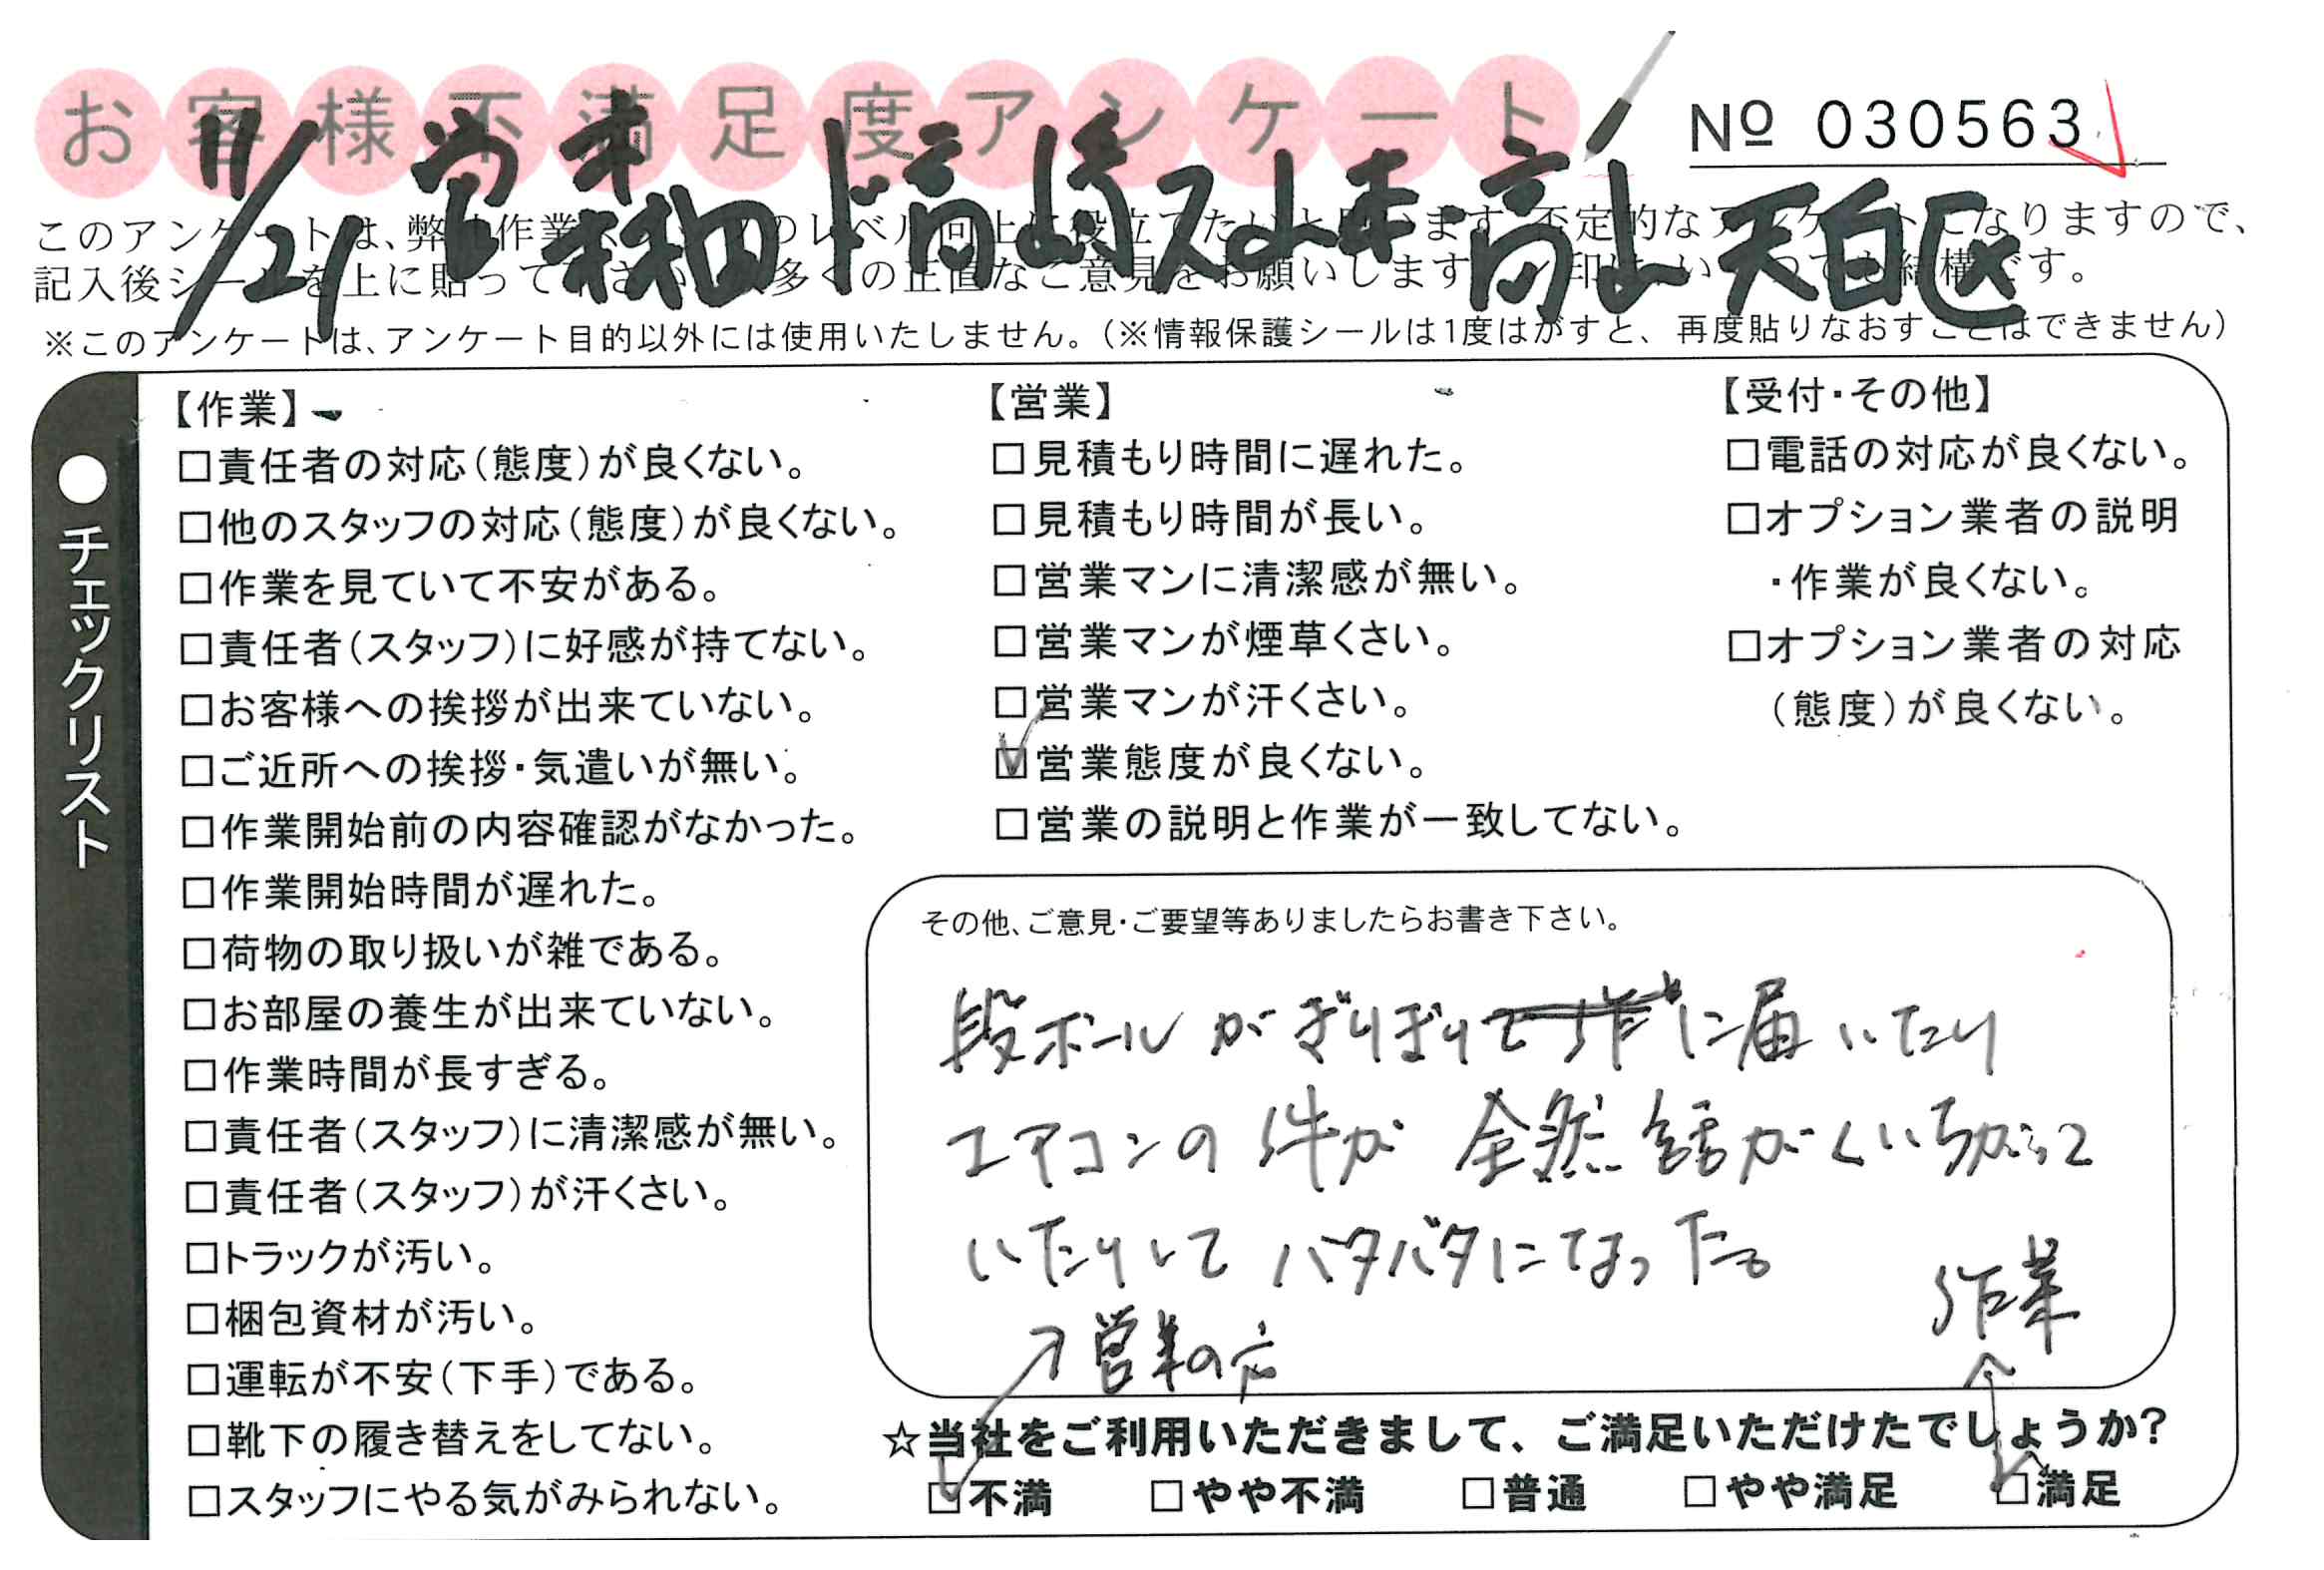 お客様不満足度アンケート
No 030563
11/21 営業 和田 ド高崎 ス山本・高山 天白区
このアンケートは、弊社作業のレベル向上に役立てたいと思います。否定的なアンケートになりますので、
記入後シールを上に貼って下さい。数多くの正直なご意見をお願いします。印はいくつでも結構です。
※このアンケートは、アンケート目的以外には使用いたしません。（※情報保護シールは1度はがすと、再度貼りなおすことはできません）
●チェックリスト
【作業】
□責任者の対応（態度）が良くない。
□他のスタッフの対応（態度）が良くない。
□作業を見ていて不安がある。
□責任者（スタッフ）に好感が持てない。
□お客様への挨拶が出来ていない。
□ご近所への挨拶・気遣いが無い。
□作業開始前の内容確認がなかった。
□作業開始時間が遅れた。
□荷物の取り扱いが雑である。
□お部屋の養生が出来ていない。
□作業時間が長すぎる。
□責任者（スタッフ）に清潔感が無い。
□責任者（スタッフ）が汗くさい。
□トラックが汚い。
□梱包資材が汚い。
□運転が不安（下手）である。
□靴下の履き替えをしてない。
□スタッフにやる気がみられない。
【営業】
□見積もり時間に遅れた。
□見積もり時間が長い。
□営業マンに清潔感が無い。
□営業マンが煙草くさい。
□営業マンが汗くさい。
☑営業態度が良くない。
□営業の説明と作業が一致してない。
【受付・その他】
□電話の対応が良くない。
□オプション業者の説明
・作業が良くない。
□オプション業者の対応
（態度）が良くない。
その他、ご意見・ご要望等ありましたらお書き下さい。
段ボールがぎりぎりに届いたり
エアコンの件が全然話がくいちがって
いたりしてバタバタになった。
営業の方
作業
☆当社をご利用いただきまして、ご満足いただけたでしょうか？
☑不満 □やや不満 □普通 □やや満足 ☑満足